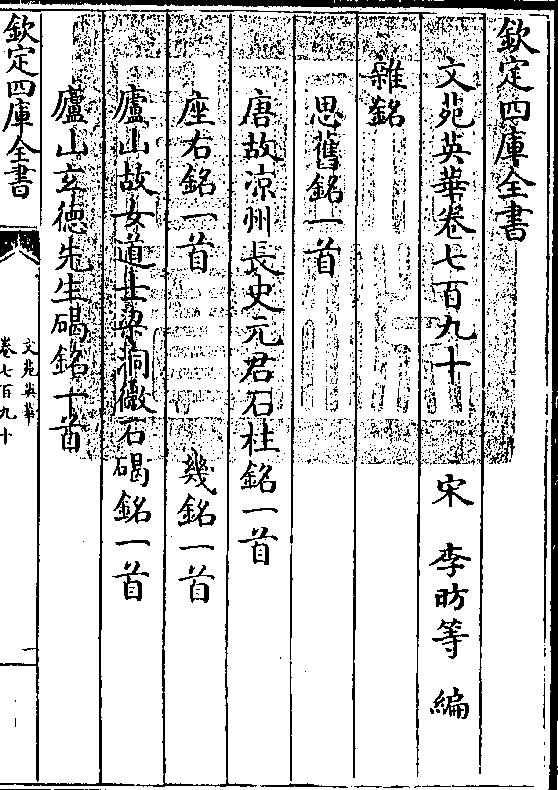 欽定四庫全書
文苑英華卷七百九十
宋 李昉等 編
雜銘
思舊銘一首
唐故凉州長史元君石柱銘一首
座右銘一首 幾銘一首
廬山故女道士梁洞微石碣銘一首
廬山玄徳先生碣銘一首
欽定四庫全書
文苑英華
卷七百九十
一